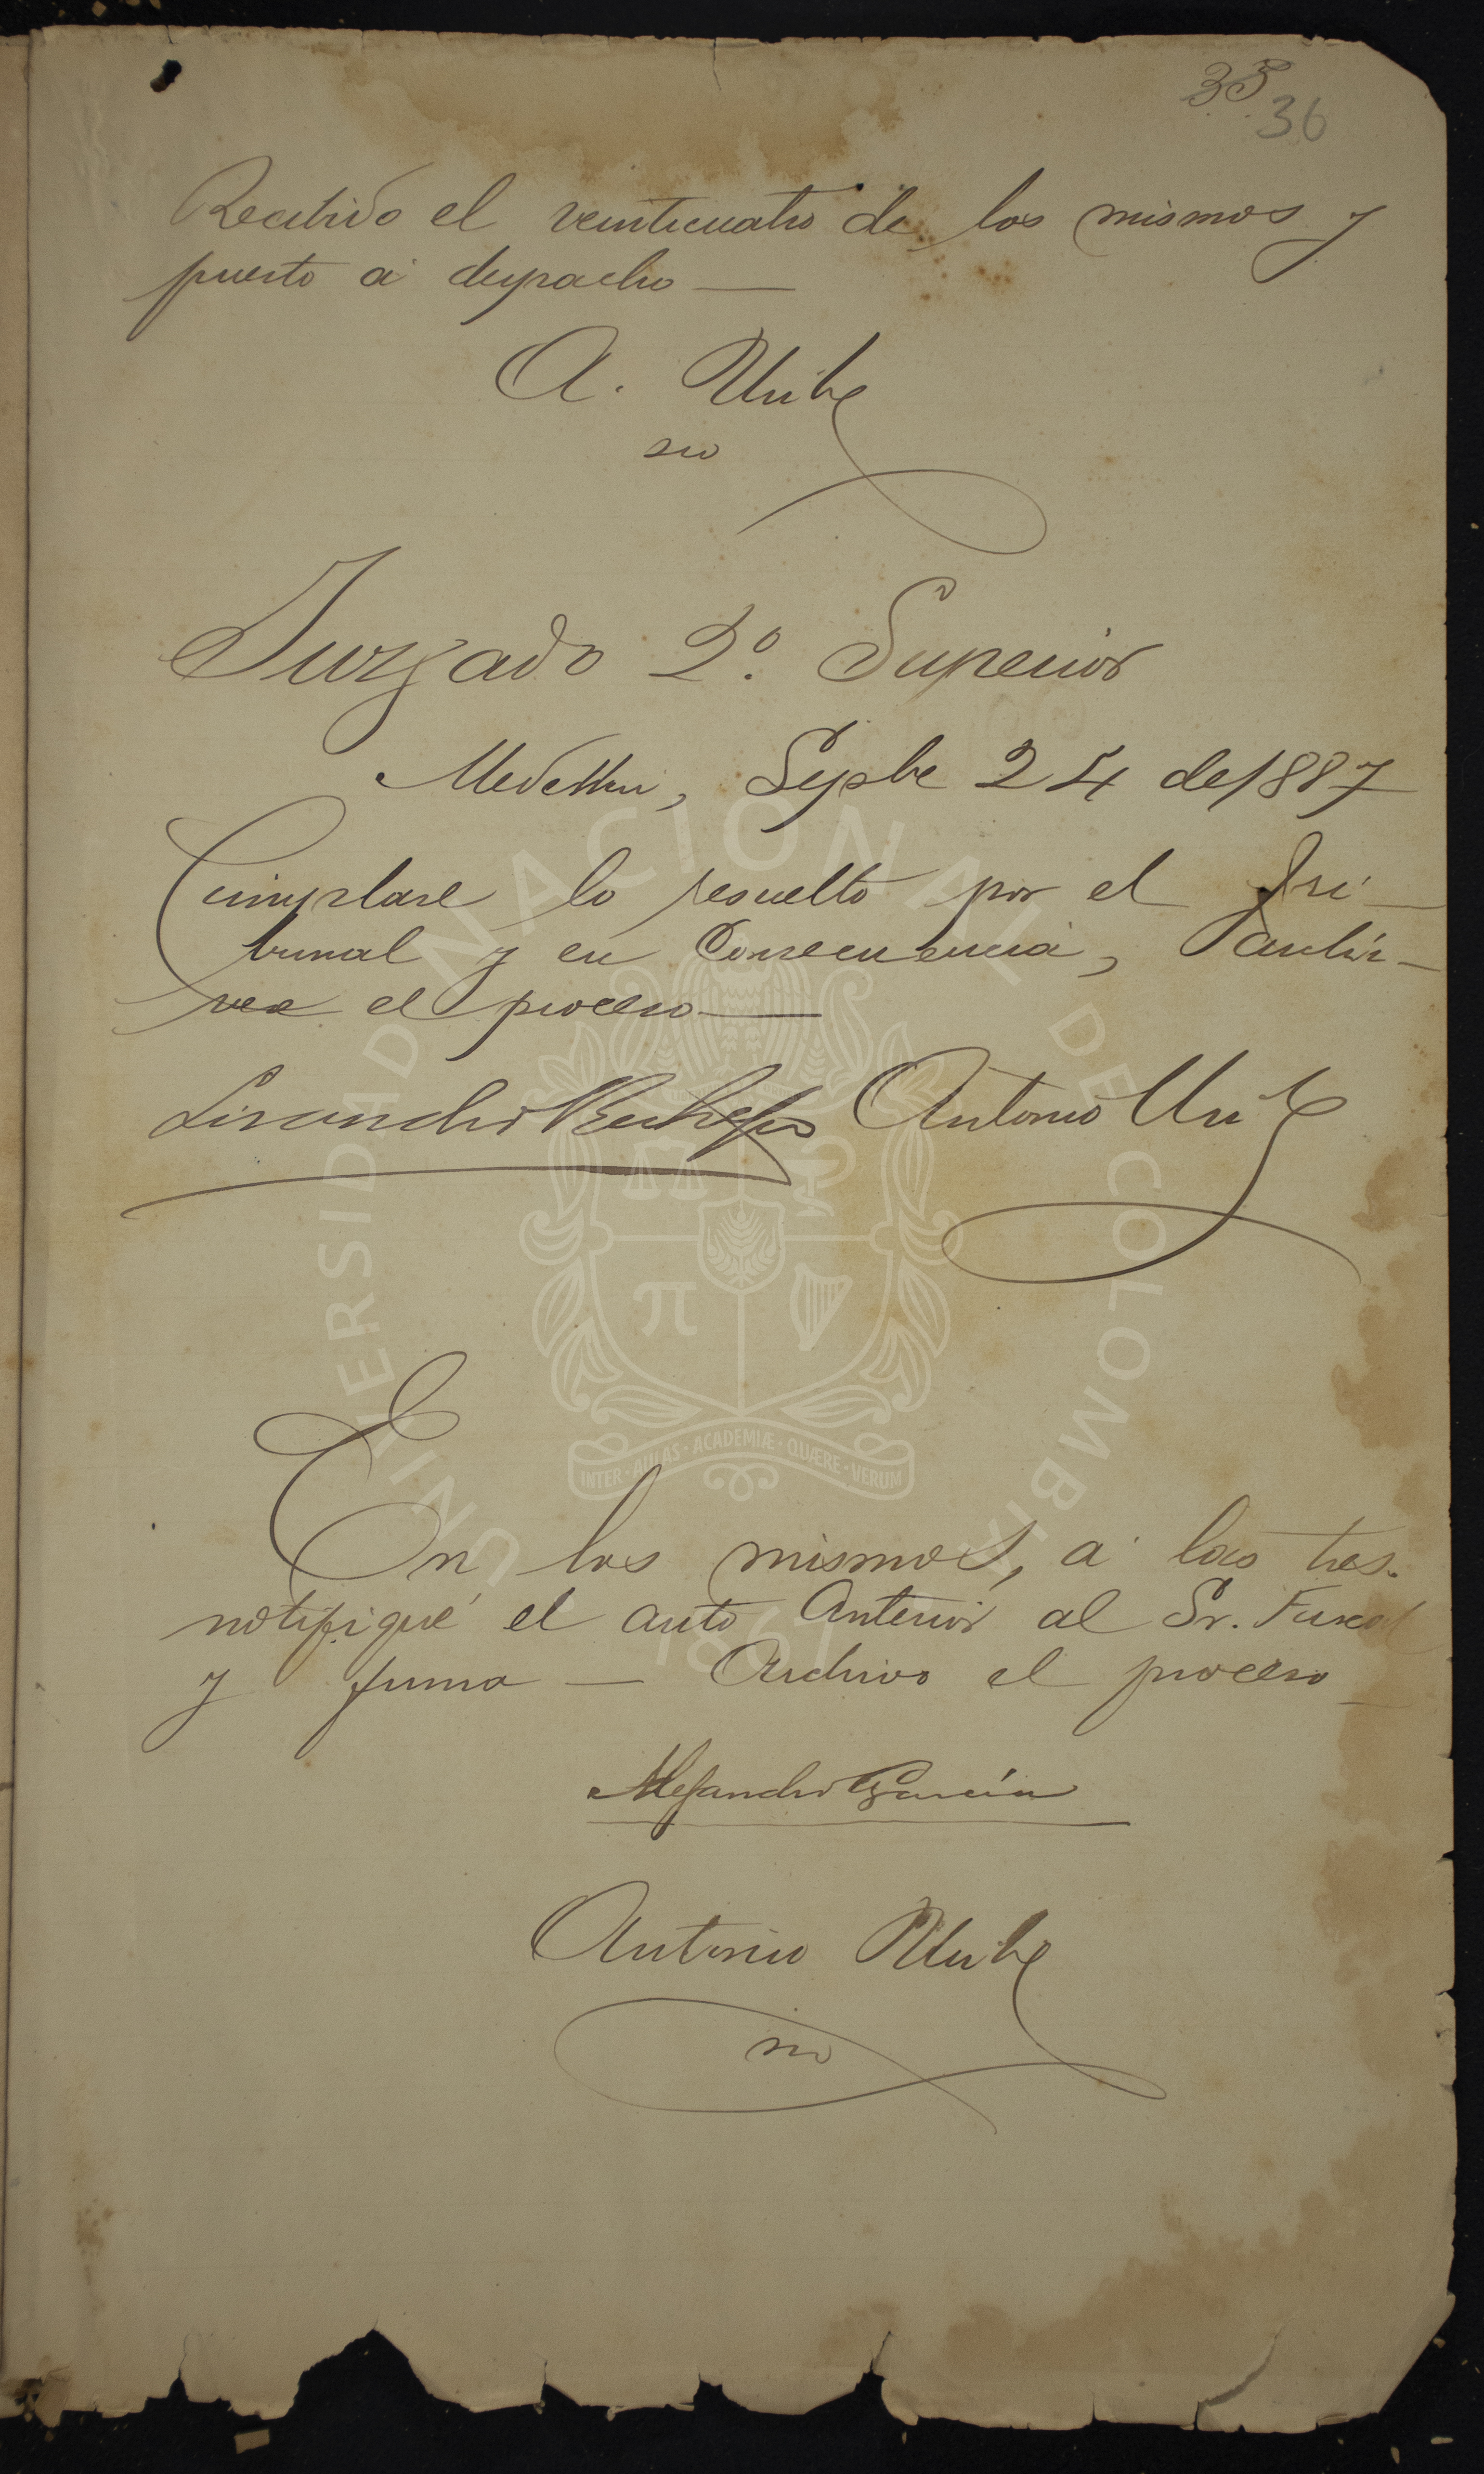 35
36
Recibido el veinticuatro de los mismos y
puesto a despacho —
A. Uribe
srio
Juzgado 2º. Superior
Medellin, Sepbe 24 de 1887
Cumplase lo resuelto por el Tri-
bunal y en consecuencia, archi-
vese el proceso —
Lisandro Restrepo Antonio Uribe
En los mismos, a las tres.
notifiqué el auto anterior al Sr. Fiscal
y firma — Archivo el proceso —
Alejandro García
Antonio Uribe
srio
UNIVERSIDAD NACIONAL DE COLOMBIA
INTER · AULAS · ACADEMIÆ · QUÆRE · VERUM
1867